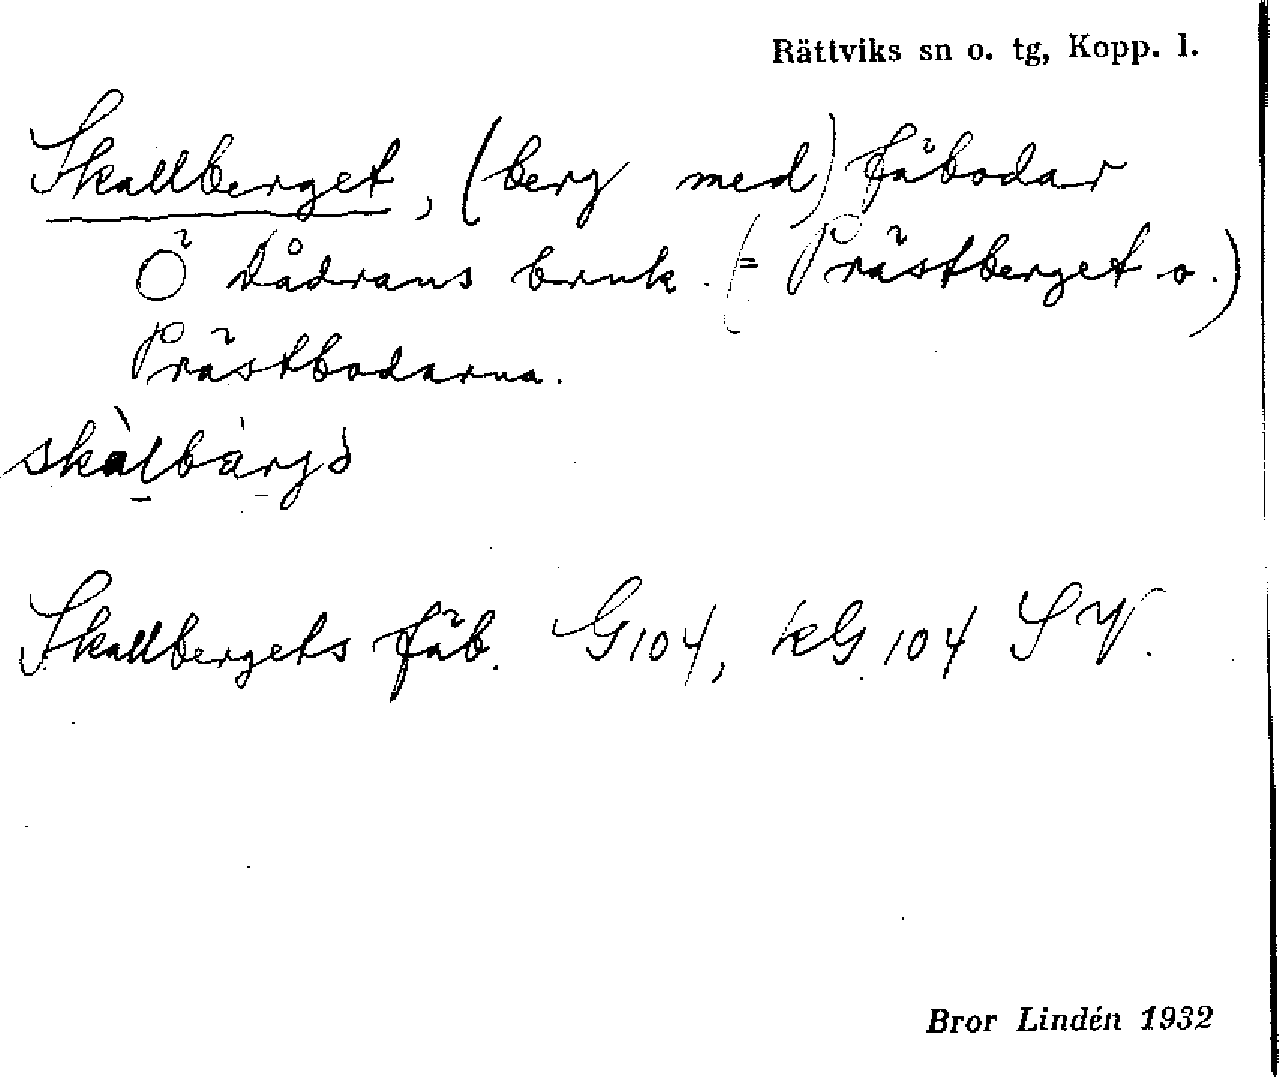 Rättviks sn o. tg, Kopp. l.
Skallberget, (berg med) fäbodar
Ö Dådrans bruk. (= Prästberget o.)
Prästbodarna.
Skallbergets fäb. G104, kG 104 SV.
Bror Lindén 1932